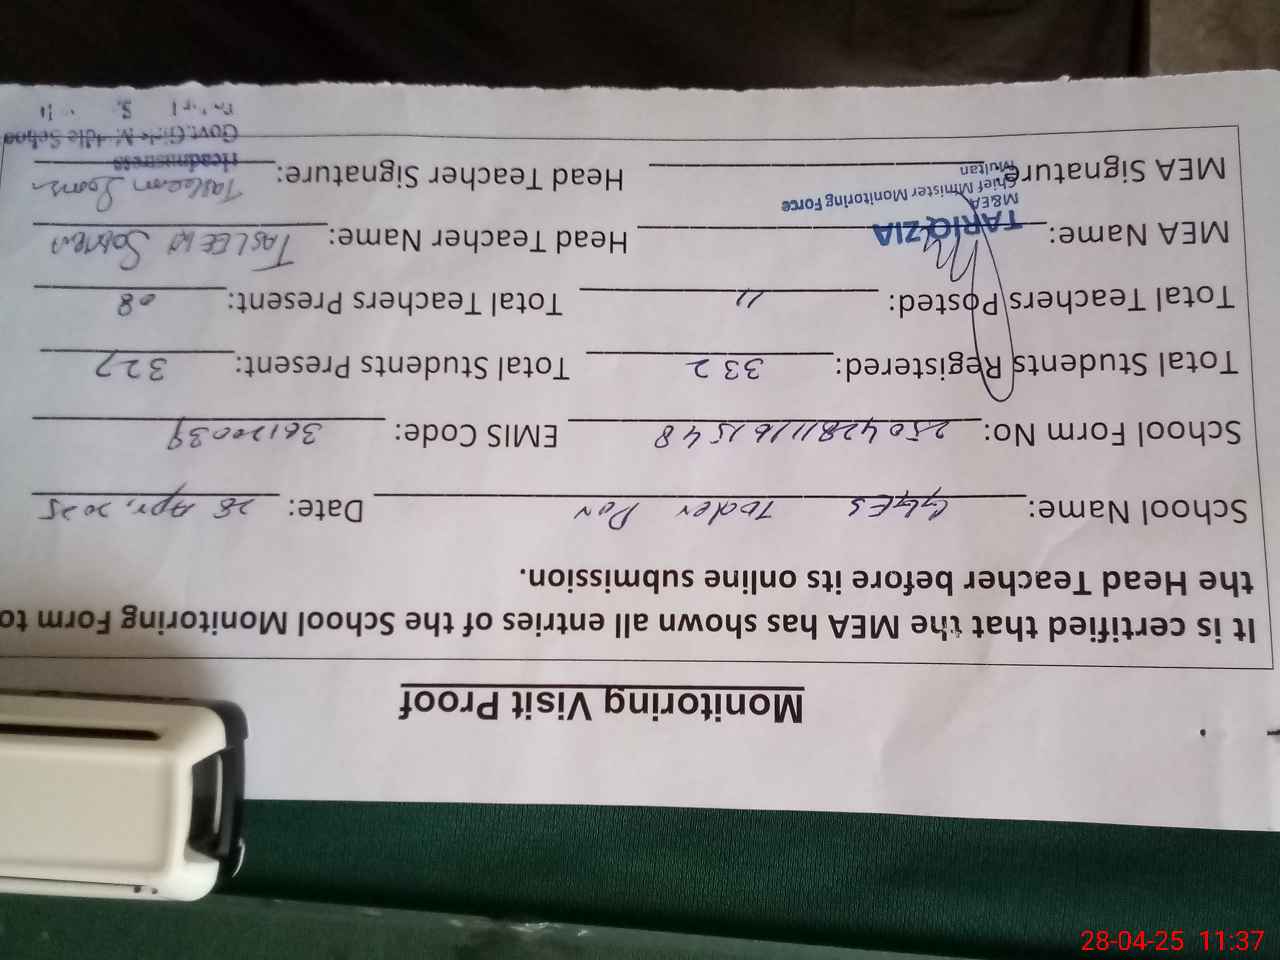 Monitoring Visit Proof
It is certified that the MEA has shown all entries of the School Monitoring Form to
the Head Teacher before its online submission.
School Name: GGES Toder Por Date: 28 Apr, 2025
School Form No: 25042811161548 EMIS Code: 36120039
Total Students Registered: 332 Total Students Present: 327
Total Teachers Posted: 11 Total Teachers Present: 08
MEA Name: TARIQ ZIA Head Teacher Name: TASLEEM
M&EA
Chief Minister Monitoring Force
Multan
MEA Signature Head Teacher Signature: Tasleem
Headmistress
Govt. Girls Middle School
28-04-25 11:37